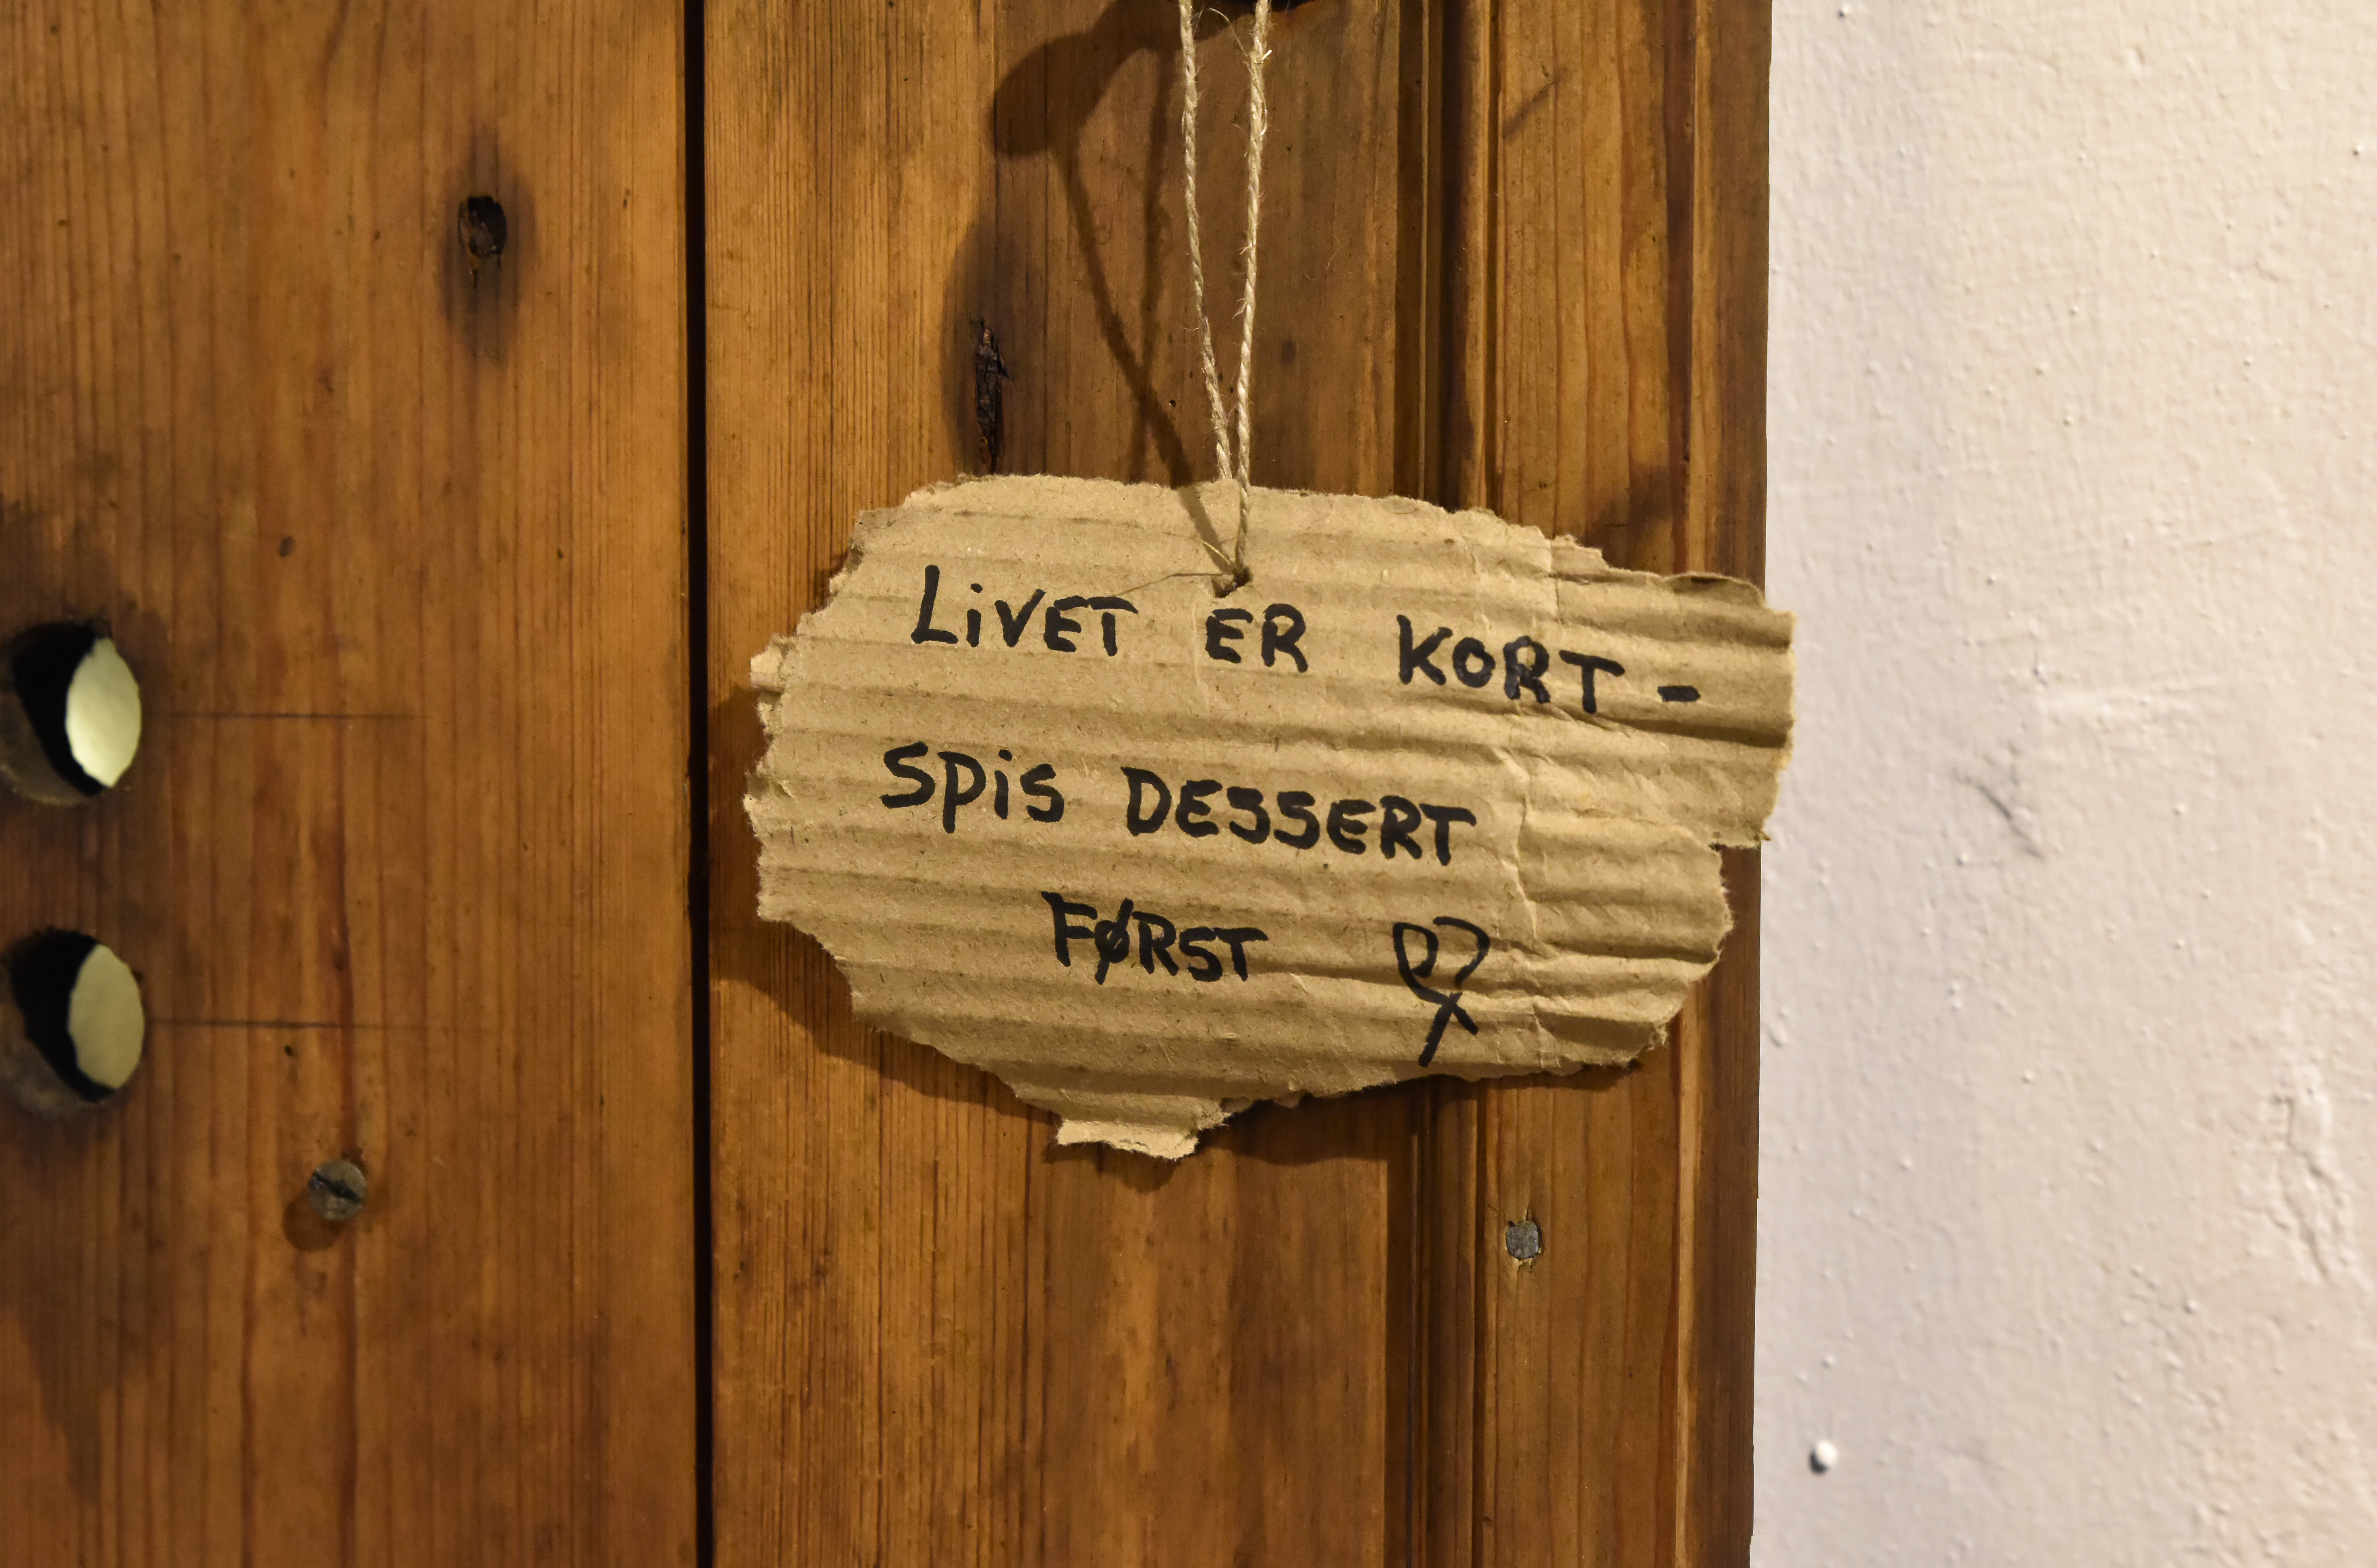 LiVET ER KORT -
SPiS DESSERT
FØRST